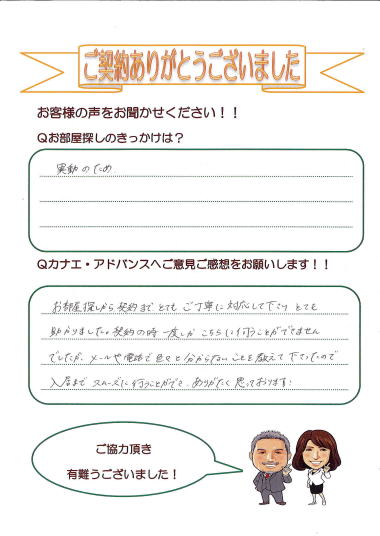 ご契約ありがとうございました
お客様の声をお聞かせください！！
Qお部屋探しのきっかけは？
異動のため
Qカナエ・アドバンスへご意見ご感想をお願いします！！
お部屋探しから契約まで とても ご丁寧に 対応して下さり とても
助かりました。契約の時 一度しか こちらに行うことができません
でしたが、メールや電話で色々と分からないことを教えて下さったので
入居まで スムーズに行うことができ、ありがたく思っております！
ご協力頂き
有難うございました！